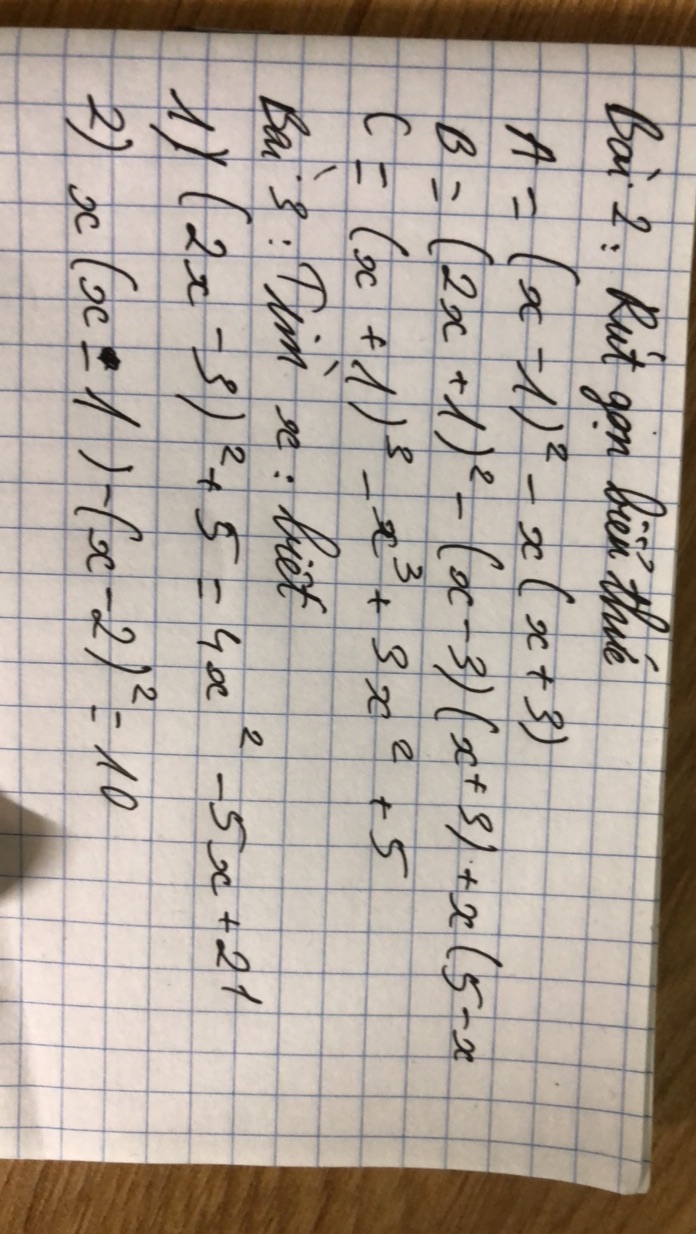 Bài 2: Rút gọn biểu thức
A = (x - 1)² - x(x + 3)
B = (2x + 1)² - (x - 3)(x + 3) + x(5 - x
C = (x + 1)³ - x³ + 3x² + 5
Bài 3: Tìm x: biết
1) (2x - 3)² + 5 = 4x² - 5x + 21
2) x(x - 1) - (x - 2)² = 10